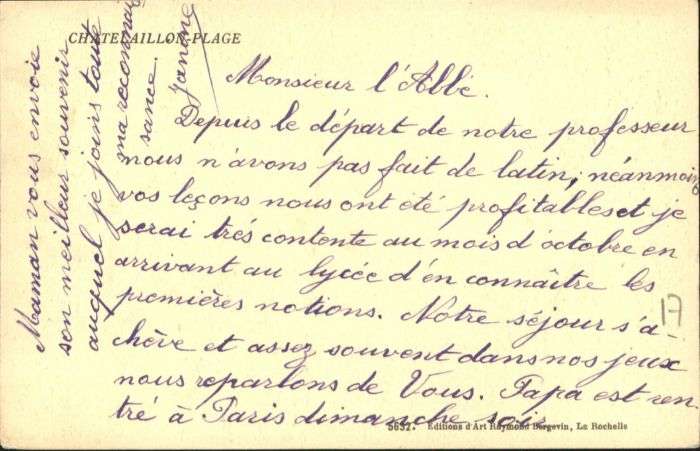 CHATELAILLON-PLAGE
Monsieur l'Abbé.
Depuis le départ de notre professeur
nous n'avons pas fait de latin, néanmoins
vos leçons nous ont été profitables et je
serai trés contente au mois d'octobre en
arrivant au lycée d'en connaître les
premières notions. Notre séjour s'a-
chève et assez souvent dans nos jeux
nous reparlons de Vous. Papa est ren
tré à Paris dimanche soir
Maman vous envoie
son meilleur souvenir
auquel je joins toute
ma reconnais
sance.
Janine
17
5632. Editions d'Art Raymond Bergevin, La Rochelle